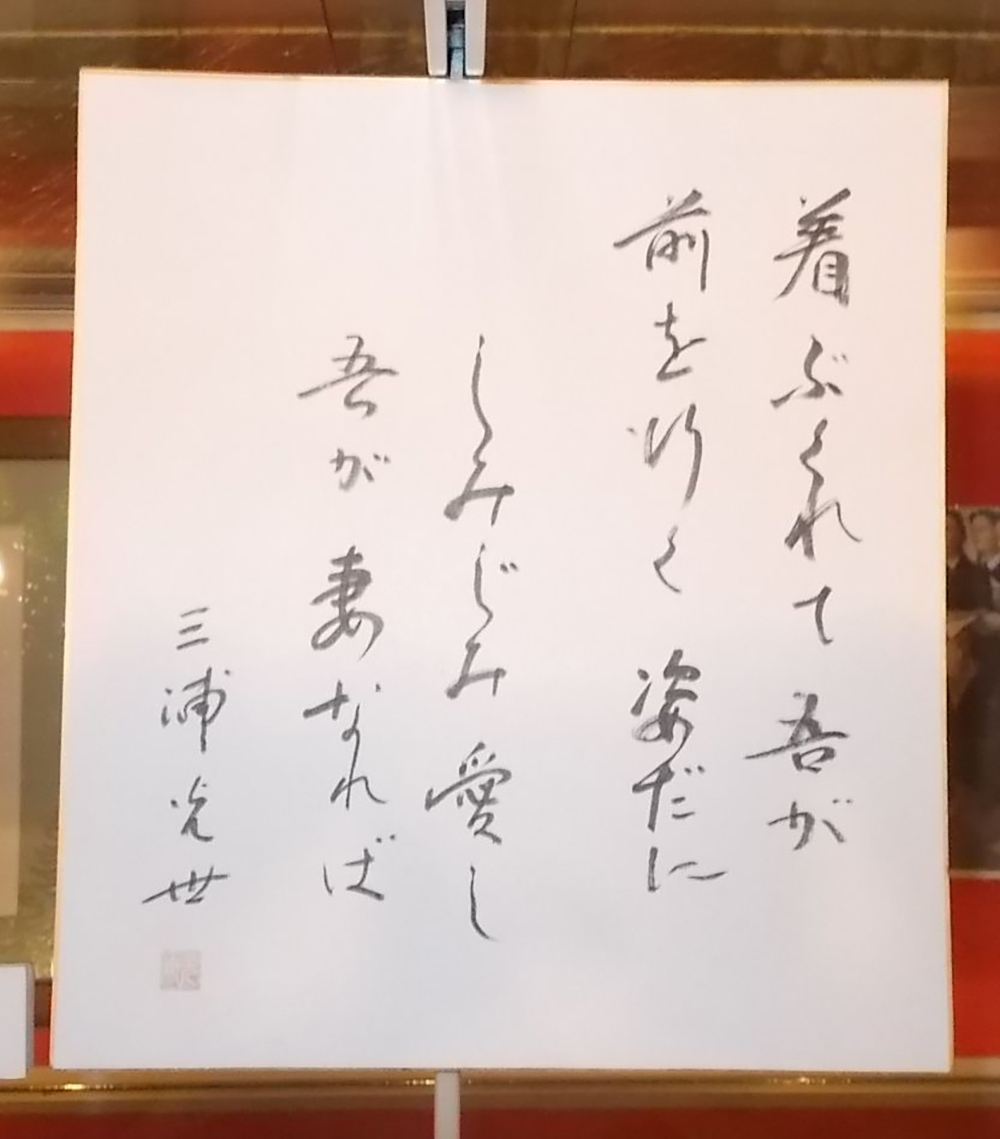 着ぶくれて吾が
前を行く姿だに
しみじみ愛し
吾が妻なれば
三浦光世